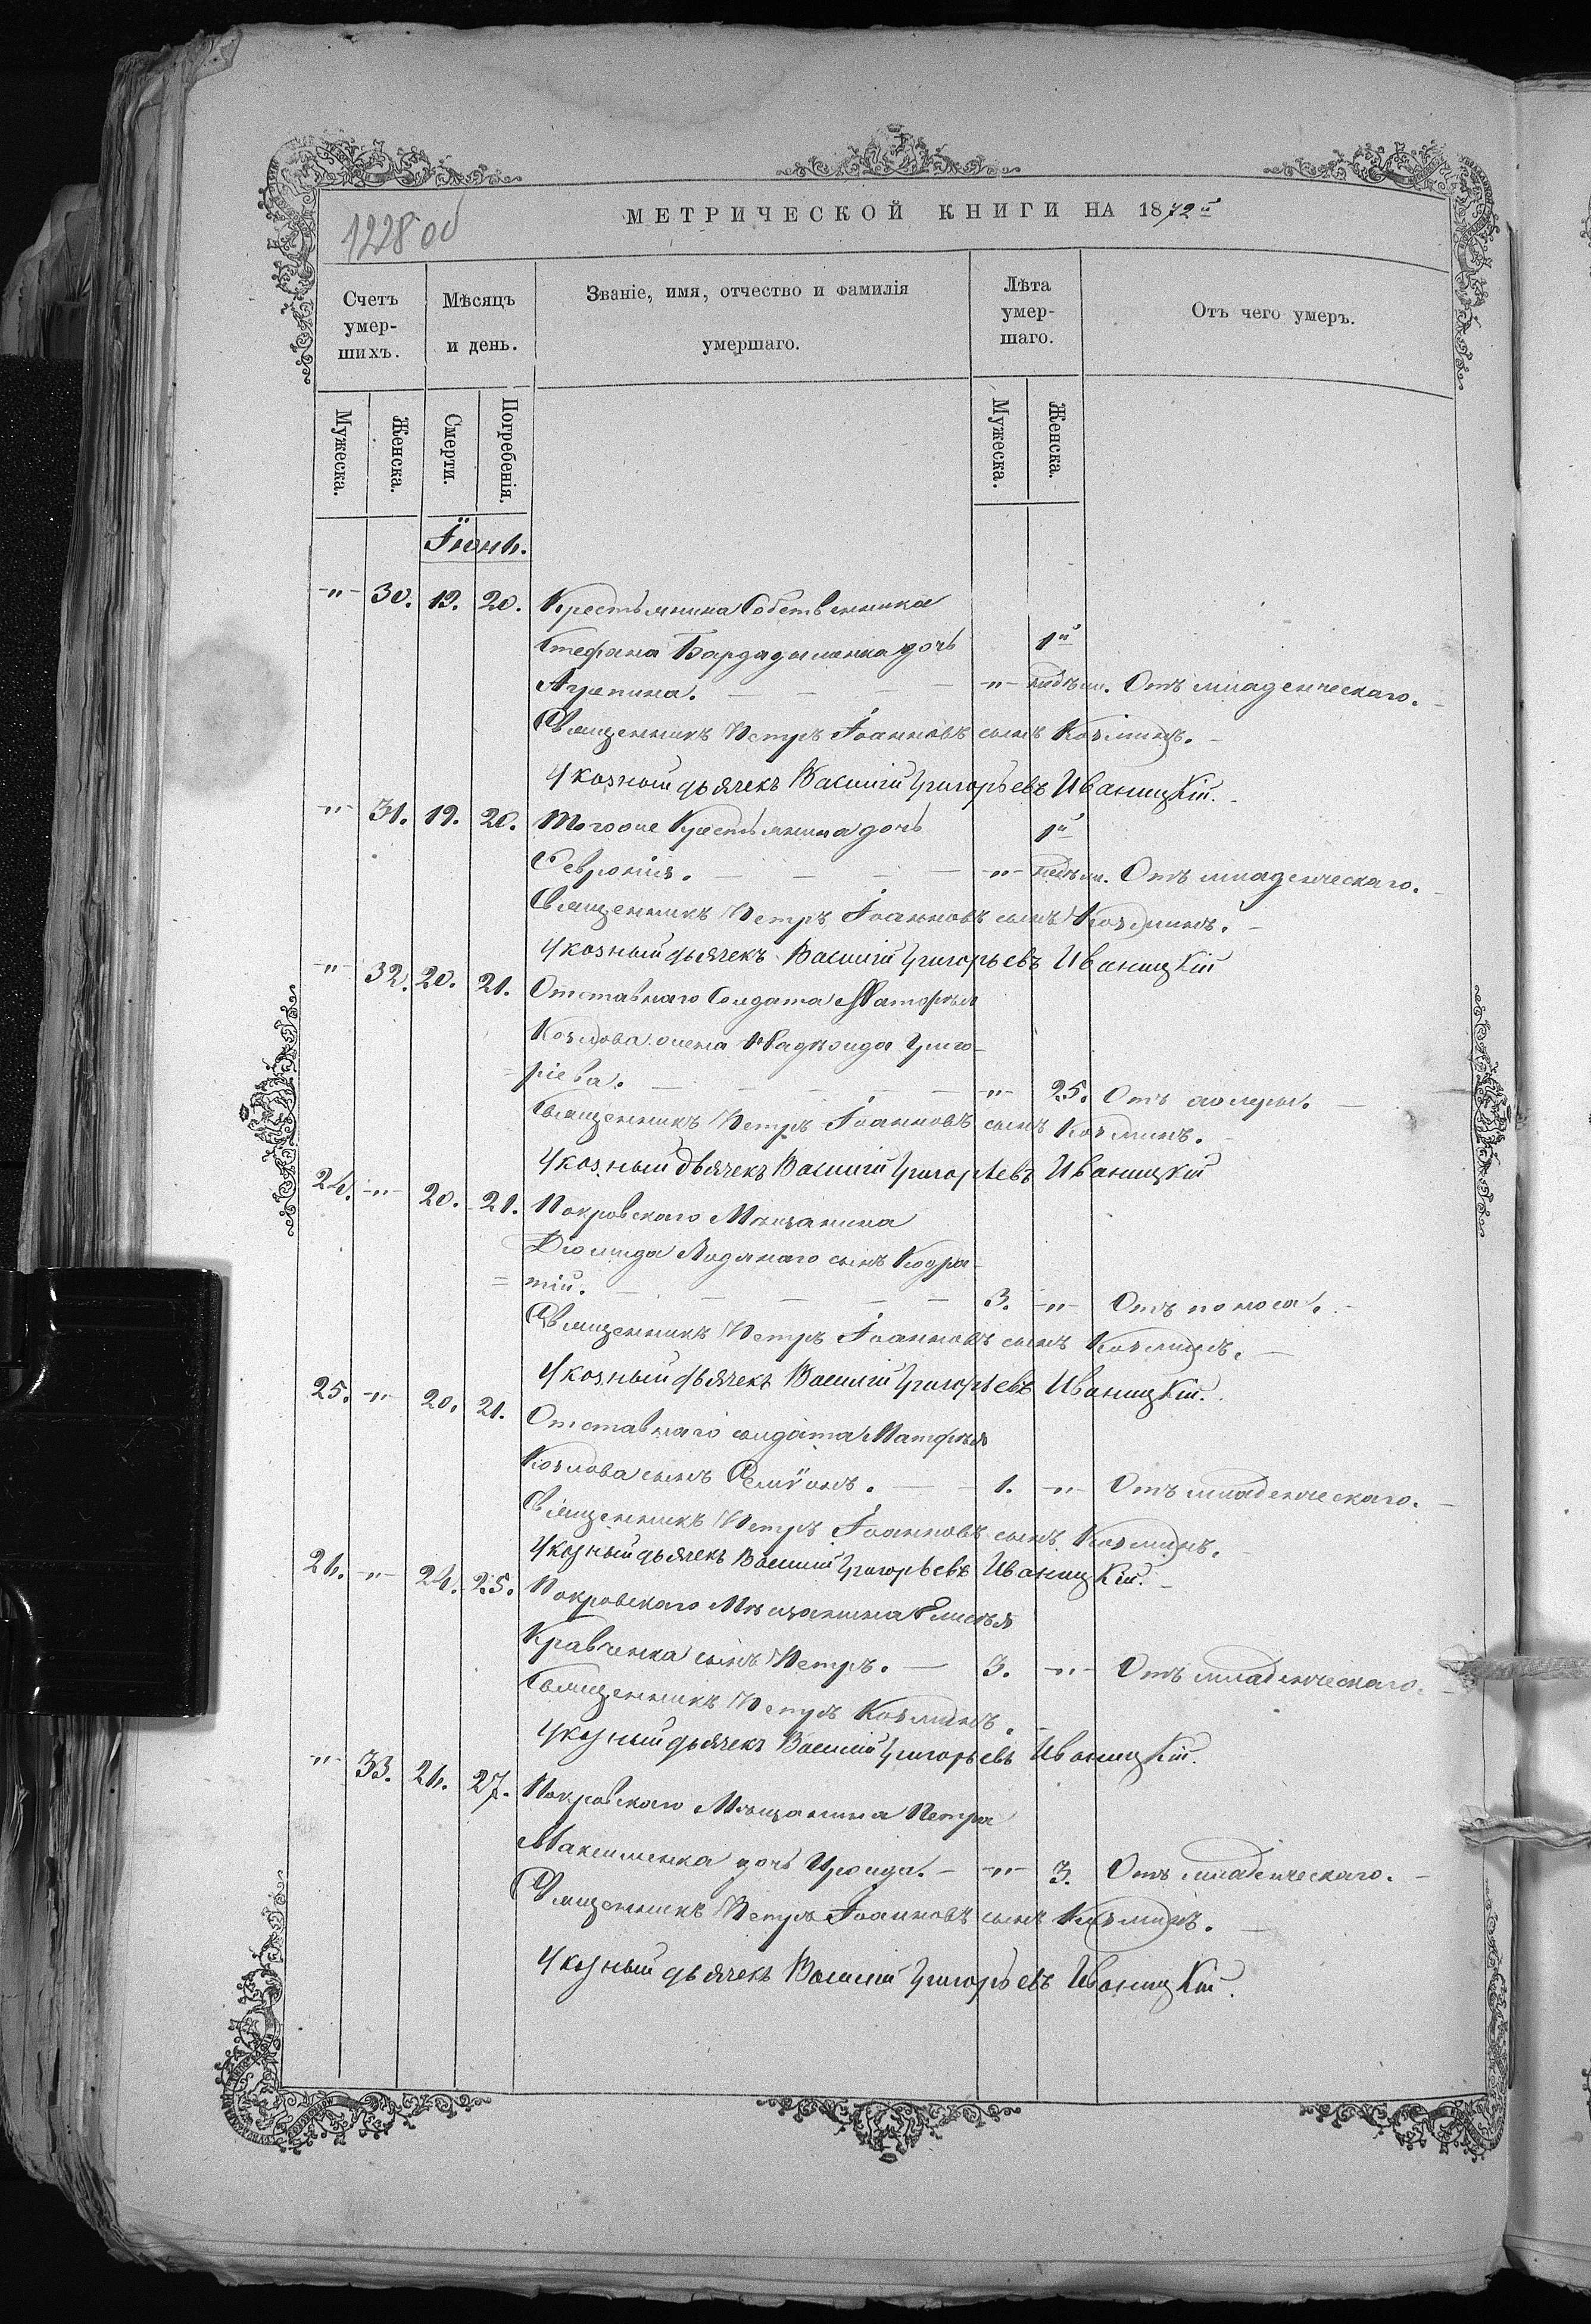 1228 об
МЕТРИЧЕСКОЙ КНИГИ НА 1872й
Счетъ умер-шихъ.
Мѣсяцъ и день.
Званіе, имя, отчество и фамилія умершаго.
Лѣта умер-шаго.
Отъ чего умеръ.
Мужеска. Женска. Смерти. Погребенія. Мужеска. Женска.
Іюнь.
-"- 30. 19. 20. Крестьянина Собственника
Стефана Бардадыменка дочь 1й
Агрипина. -"- недѣли. Отъ младенческаго.
Священникъ Петръ Іоанновъ сынъ Козминъ.
Указный дьячекъ Василій Григорьевъ Иваницкій.
-"- 31. 19. 20. Тогоже Крестьянина дочь 1й
Февронія. -"- недѣли. Отъ младенческаго.
Священникъ Петръ Іоанновъ сынъ Козминъ.
Указный дьячекъ Василій Григорьевъ Иваницкій
-"- 32. 20. 21. Отставнаго Солдата Матфѣя
Козлова жена Надѣжда Григо-
ріева. -"- 25. Отъ холеры.
Священникъ Петръ Іоанновъ сынъ Козминъ.
Указный дьячекъ Василій Григорьевъ Иваницкій
24. -"- 20. 21. Покровскаго Мѣщанина
Діомида Водянаго сынъ Кодра-
тій. 3. -"- Отъ поноса.
Священникъ Петръ Іоанновъ сынъ Козминъ.
Указный дьячекъ Василій Григорьевъ Иваницкій.
25. -"- 20. 21. Отставнаго солдата Матфѣя
Козлова сынъ Сѵмеонъ. 1. -"- Отъ младенческаго.
Священникъ Петръ Іоанновъ сынъ Козминъ.
Указный дьячекъ Василій Григорьевъ Иваницкій.
26. -"- 24. 25. Покровскаго Мѣщанина Елисѣя
Кравченка сынъ Петръ. 3. -"- Отъ младенческаго.
Священникъ Петръ Козминъ.
Указный дьячекъ Василій Григорьевъ Иваницкій.
-"- 33. 26. 27. Покровскаго Мѣщанина Петра
Максименка дочь Ироида. -"- 3. Отъ младенческаго.
Священникъ Петръ Іоанновъ сынъ Козминъ.
Указный дьячекъ Василій Григорьевъ Иваницкій.